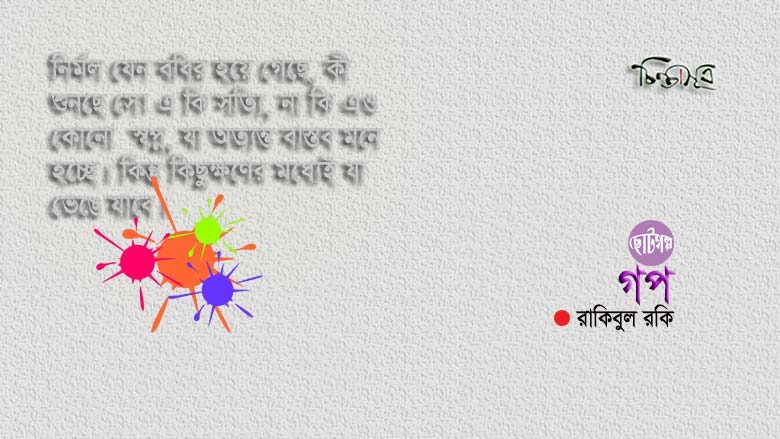 নির্মল যেন বধির হয়ে গেছে, কী
শুনছে সে! এ কি সত্যি, না কি এও
কোনো স্বপ্ন, যা অত্যন্ত বাস্তব মনে
হচ্ছে। কিন্তু কিছুক্ষণের মধ্যেই যা
ভেঙে যাবে।
চিন্তাসূত্র
ছোটগল্প
গপ
রাকিবুল রকি